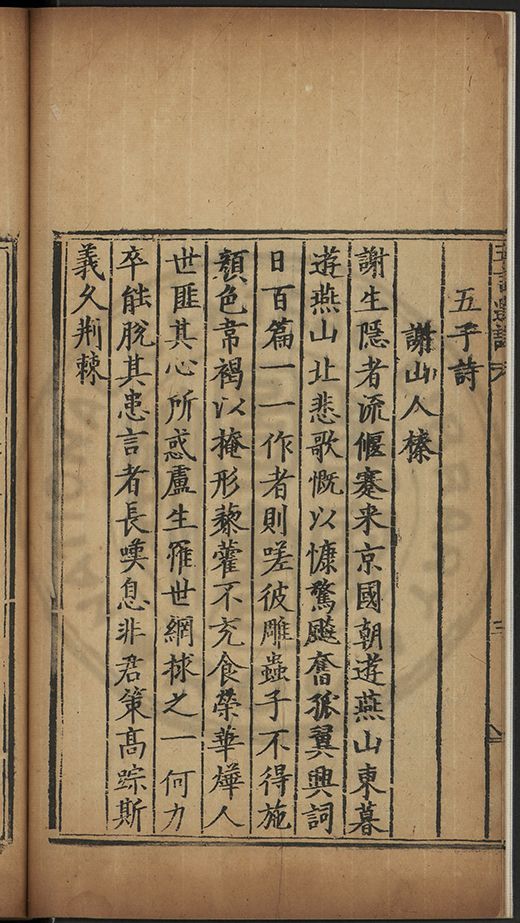 五子詩
謝山人榛
謝生隱者流偃蹇来京國朝遊燕山東暮
遊燕山北悲歌慨以慷驚飈奮孤翼興詞
日百篇一一作者則嗟彼雕蟲子不得施
顏色常褐以掩形藜藿不充食榮華燁人
世匪其心所惑盧生罹世網捄之一何力
卒能脫其患言者長嘆息非君策高踪斯
義久荆棘